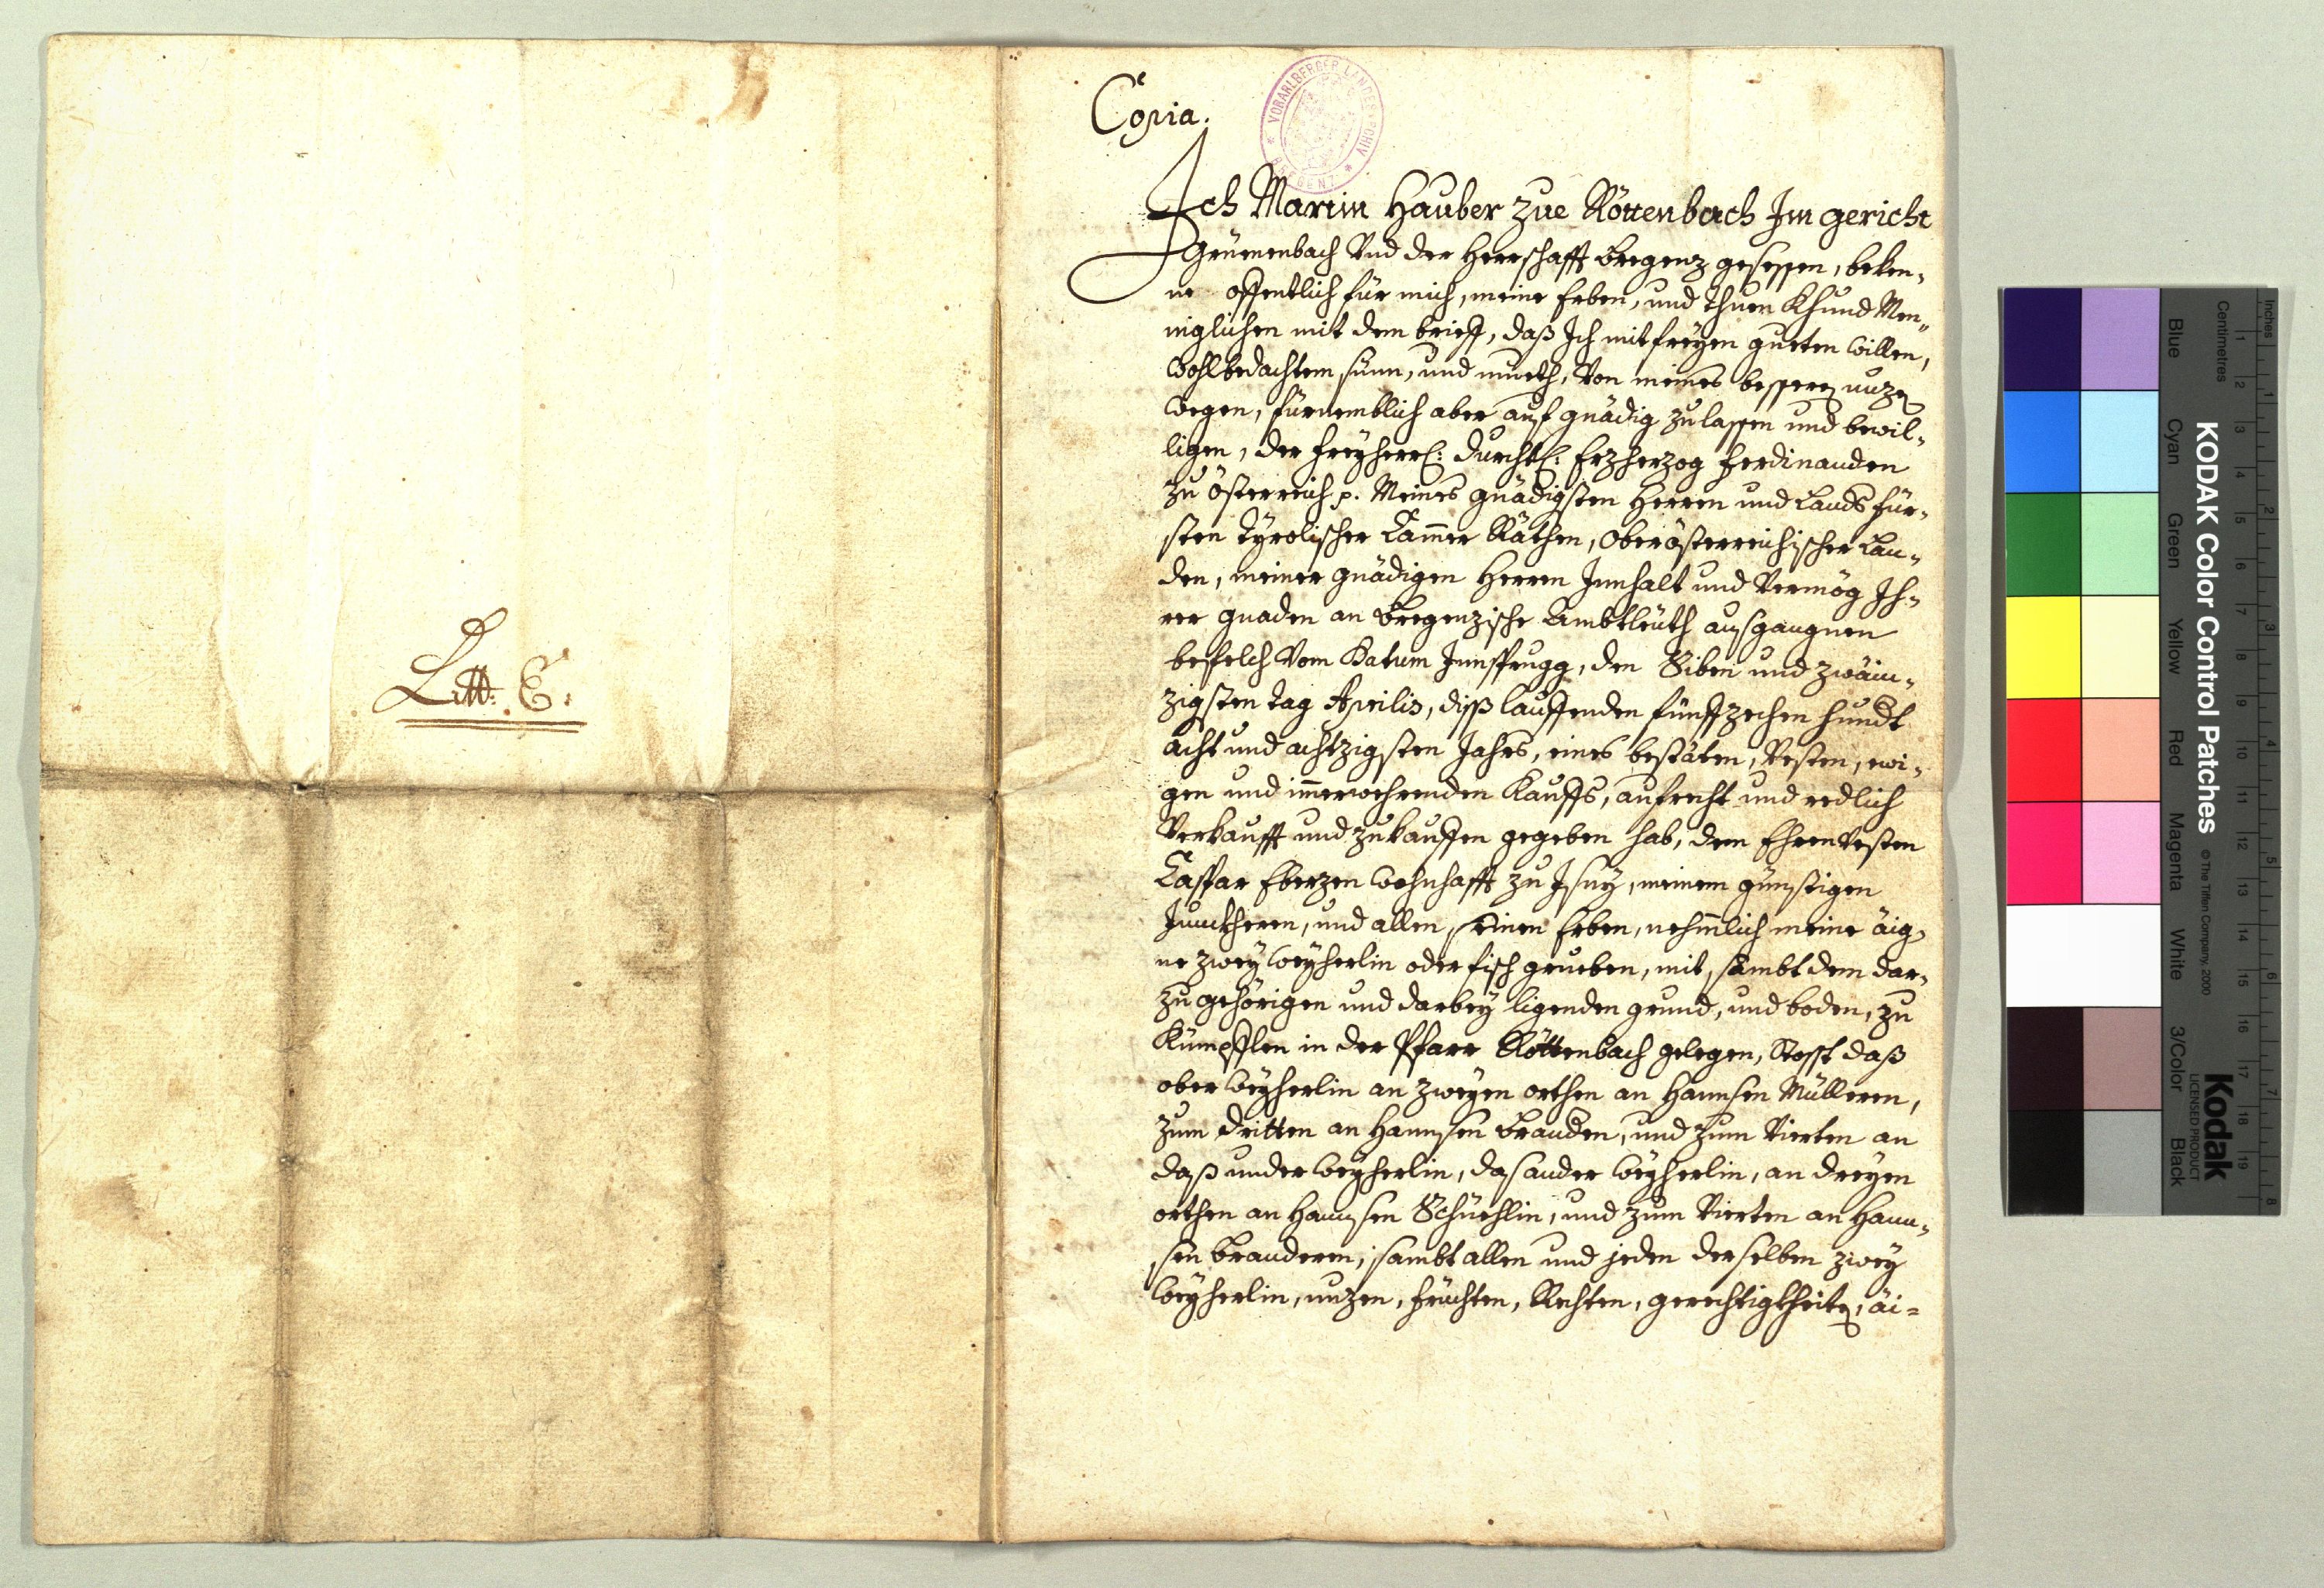 Litt: E.
Copia.
VORARLBERGER LANDESARCHIV
* BREGENZ *
Ich Martin Hauber zue Röttenbach Im gericht
Grüenenbach Vnd der Herrschafft Bregenz gesessen, beken-
ne offentlich für mich, meine Erben, und thuen Khund Men-
niglichen mit dem brieff, daß Ich mit freyen gueten willen,
wohlbedachtem sünn, und mueth, Von meines besseren nuzen
wegen, fürnemblich aber auf gnädig zulassen und bewil-
ligen, der Durchl: Erzherzog Ferdinanden
zu Österreich p. Meines gnädigsten Herren und Landsfür-
sten Tyrolischer Cammer Räthen, Oberösterreichischer Lan-
den, meiner gnädigen Herren Innhalt und Vermög Ih-
rer gnaden an Bregenzische Ambtleüth aussgangnen
befelch Vom Datum Innsprugg, den Siben und zwäin-
zigsten tag Aprilis, diß lauffenden fünffzechen hundt
acht und achtzigsten Jahrs, eines bestäten, Vesten, ewi-
gen und immerwehrenden Kauffs, aufrecht und redlich
Verkaufft und zukauffen gegeben hab, dem Ehrenvesten
Caspar Eberzen wohnhafft zu Isny, meinem günstigen
Junckheren, und allen seinen Erben, nehmlich meine äig-
ne zwey weyherlin oder fisch grueben, mit sambt dem dar-
zu gehörigen und darbey ligenden grund, und boden, zu
Kümpfflen in der Pfarr Röttenbach gelegen, Stosst daß
ober weyherlin an zweyen orthen an Hannsen Mülleren,
zum dritten an Hannsen Branden, und zum Vierten an
daß under weyherlin, das ander weyherlin, an dreyen
orthen an Hannsen Schüchlin, und zum Vierten an Hann-
sen Branderen, sambt allen und jeden derselben zwey
weyherlin, nuzen, früchten, Rechten, gerechtigkheiten, äi-
KODAK Color Control Patches
© The Tiffen Company, 2000
Kodak
LICENSED PRODUCT
Inches
Centimetres
Blue
Cyan
Green
Yellow
Red
Magenta
White
3/Color
Black
1 2 3 4 5 6 7 8 9 10 11 12 13 14 15 16 17 18 19
1 2 3 4 5 6 7 8